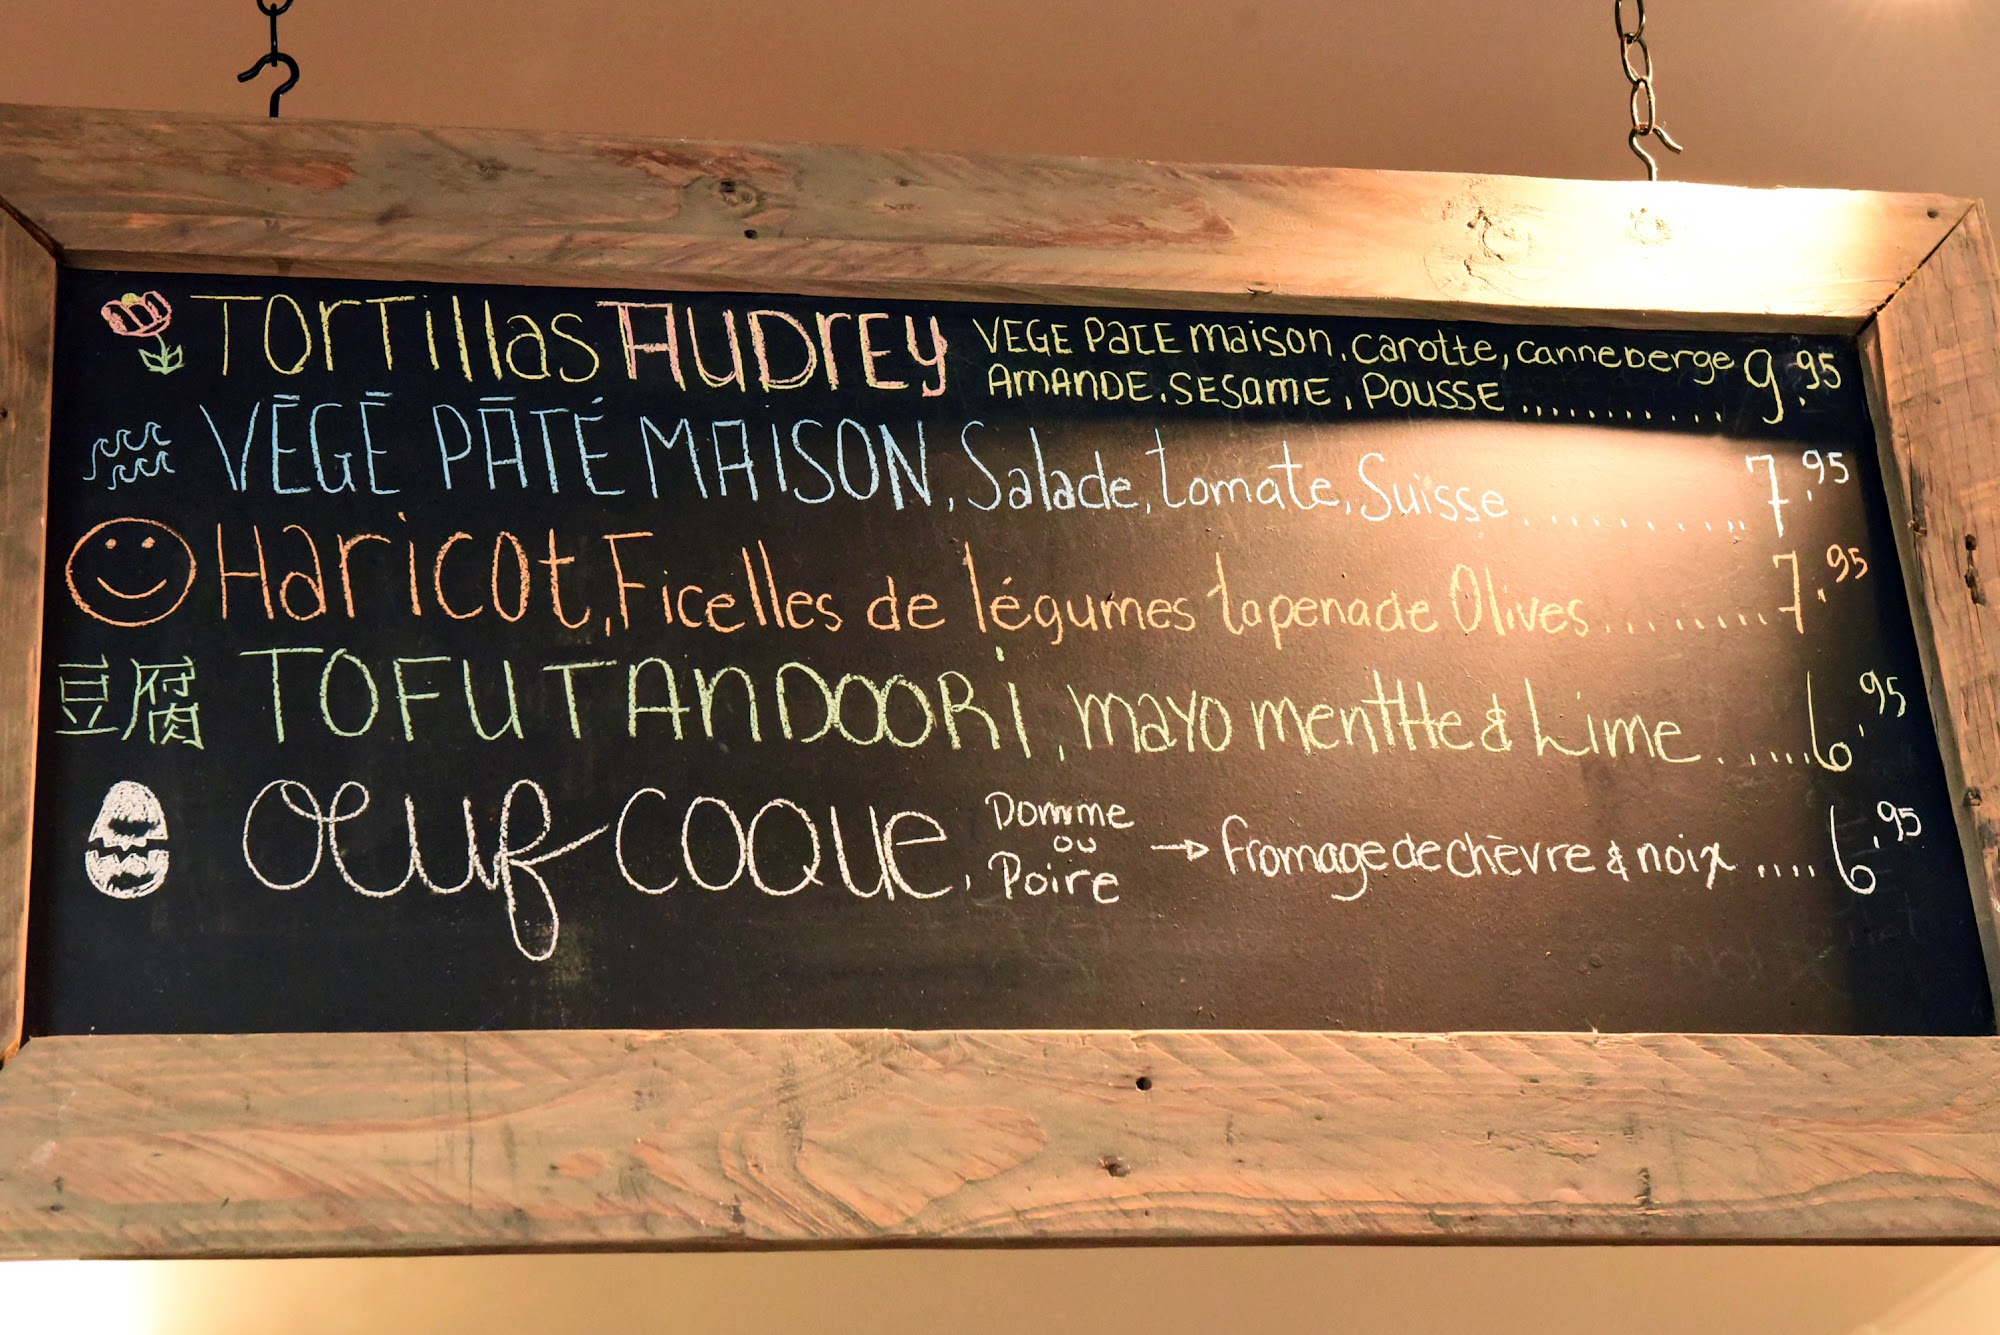 TORTillas AUDrEY VEGE PATE maison, carotte, canneberge 9.95
AMANDE, SESAME, POUSSE ............
VĒGĒ PĀTÉ MAISON, Salade, tomate, Suisse ............ 7.95
Haricot, Ficelles de légumes tapenade Olives ......... 7.95
豆腐 TOFU TANDOORI, mayo mentHe & Lime ..... 6.95
Oeuf COQUE, Pomme ou Poire → fromage de chèvre & noix .... 6.95